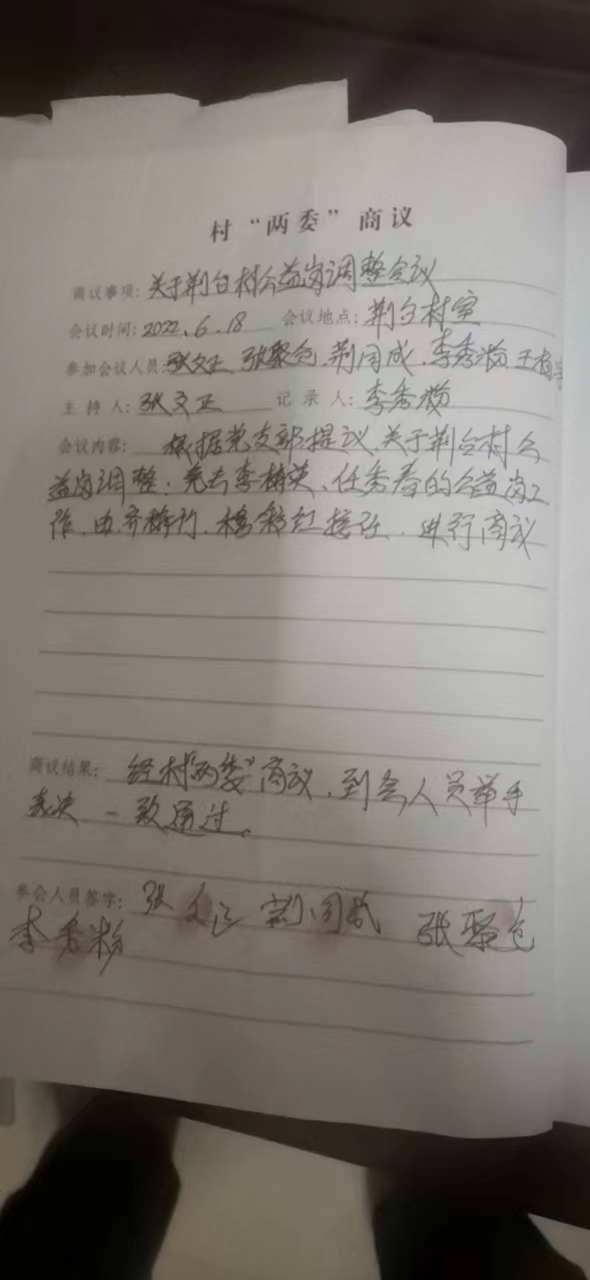 村“两委”商议
商议事项: 关于荆台村公益岗调整会议
会议时间: 2022.6.18 会议地点: 荆台村室
参加会议人员: 张文正 张聚仓 荆同成 李秀粉 王
主持人: 张文正 记录人: 李秀粉
会议内容: 根据党支部提议、关于荆台村公
益岗调整: 免去李梅英、任秀春的公益岗工
作、由齐 杨彩红接任、进行商议
商议结果: 经村“两委”商议、到会人员举手
表决一致通过。
参会人员签字: 张文正 荆同成 张聚仓
李秀粉